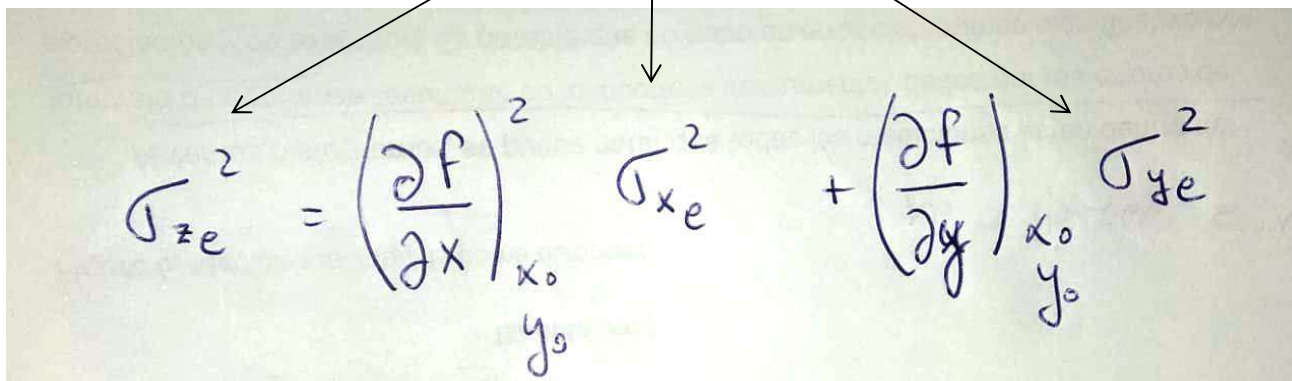 σ_{z_e}^2 = (∂f/∂x)^2_{x_0 y_0} σ_{x_e}^2 + (∂f/∂y)_{x_0 y_0} σ_{y_e}^2